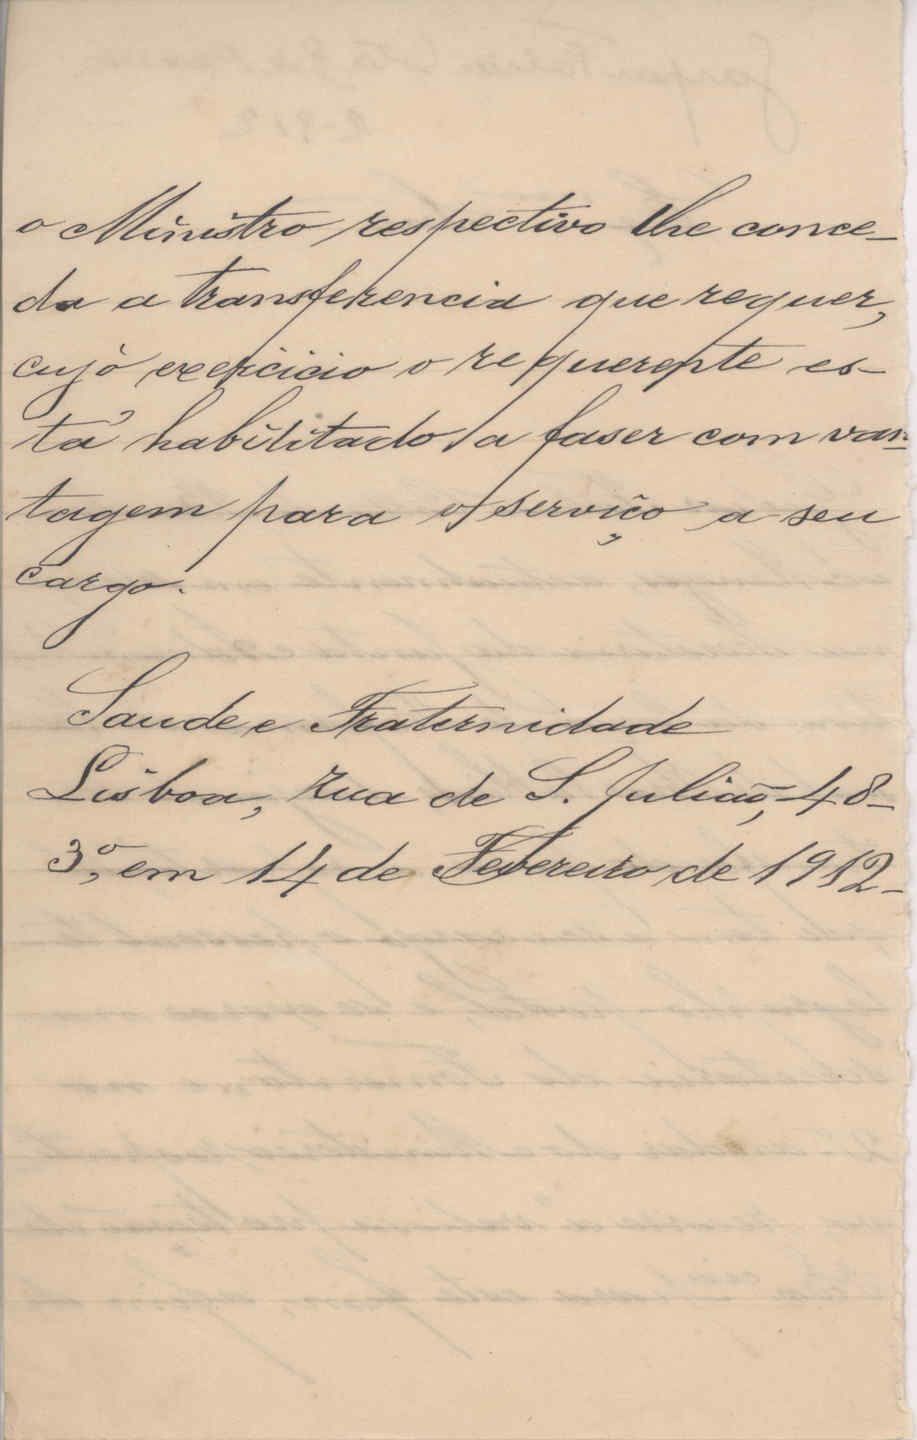 o Ministro respectivo lhe conce-
da a transferencia que requer,
cujo exercicio o requerente es-
tá habilitado a faser com van-
tagem para o serviço a seu
cargo.
Saude e Fraternidade
Lisboa, rua de S. Julião, 48-
3º, em 14 de Fevereiro de 1912-